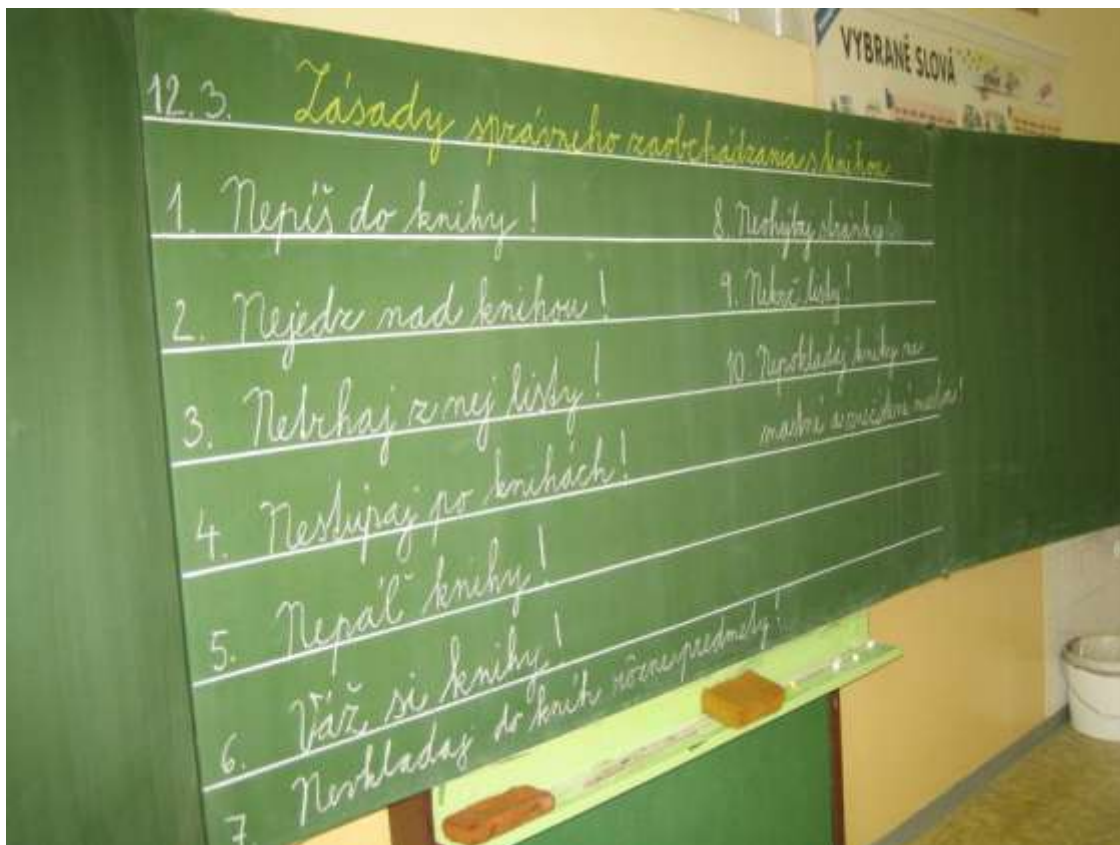 VYBRANÉ SLOVÁ
12.3. Zásady správneho zaobchádzania s knihou
1. Nepíš do knihy!
2. Nejedz nad knihou!
3. Netrhaj z nej listy!
4. Nestúpaj po knihách!
5. Nepáľ knihy!
6. Váž si knihy!
7. Nevkladaj do kníh rôzne predmety!
8. Neohýbaj stránky!
9. Nekrč listy!
10. Nepokladaj knihy na
mastné a znečistené miesta!